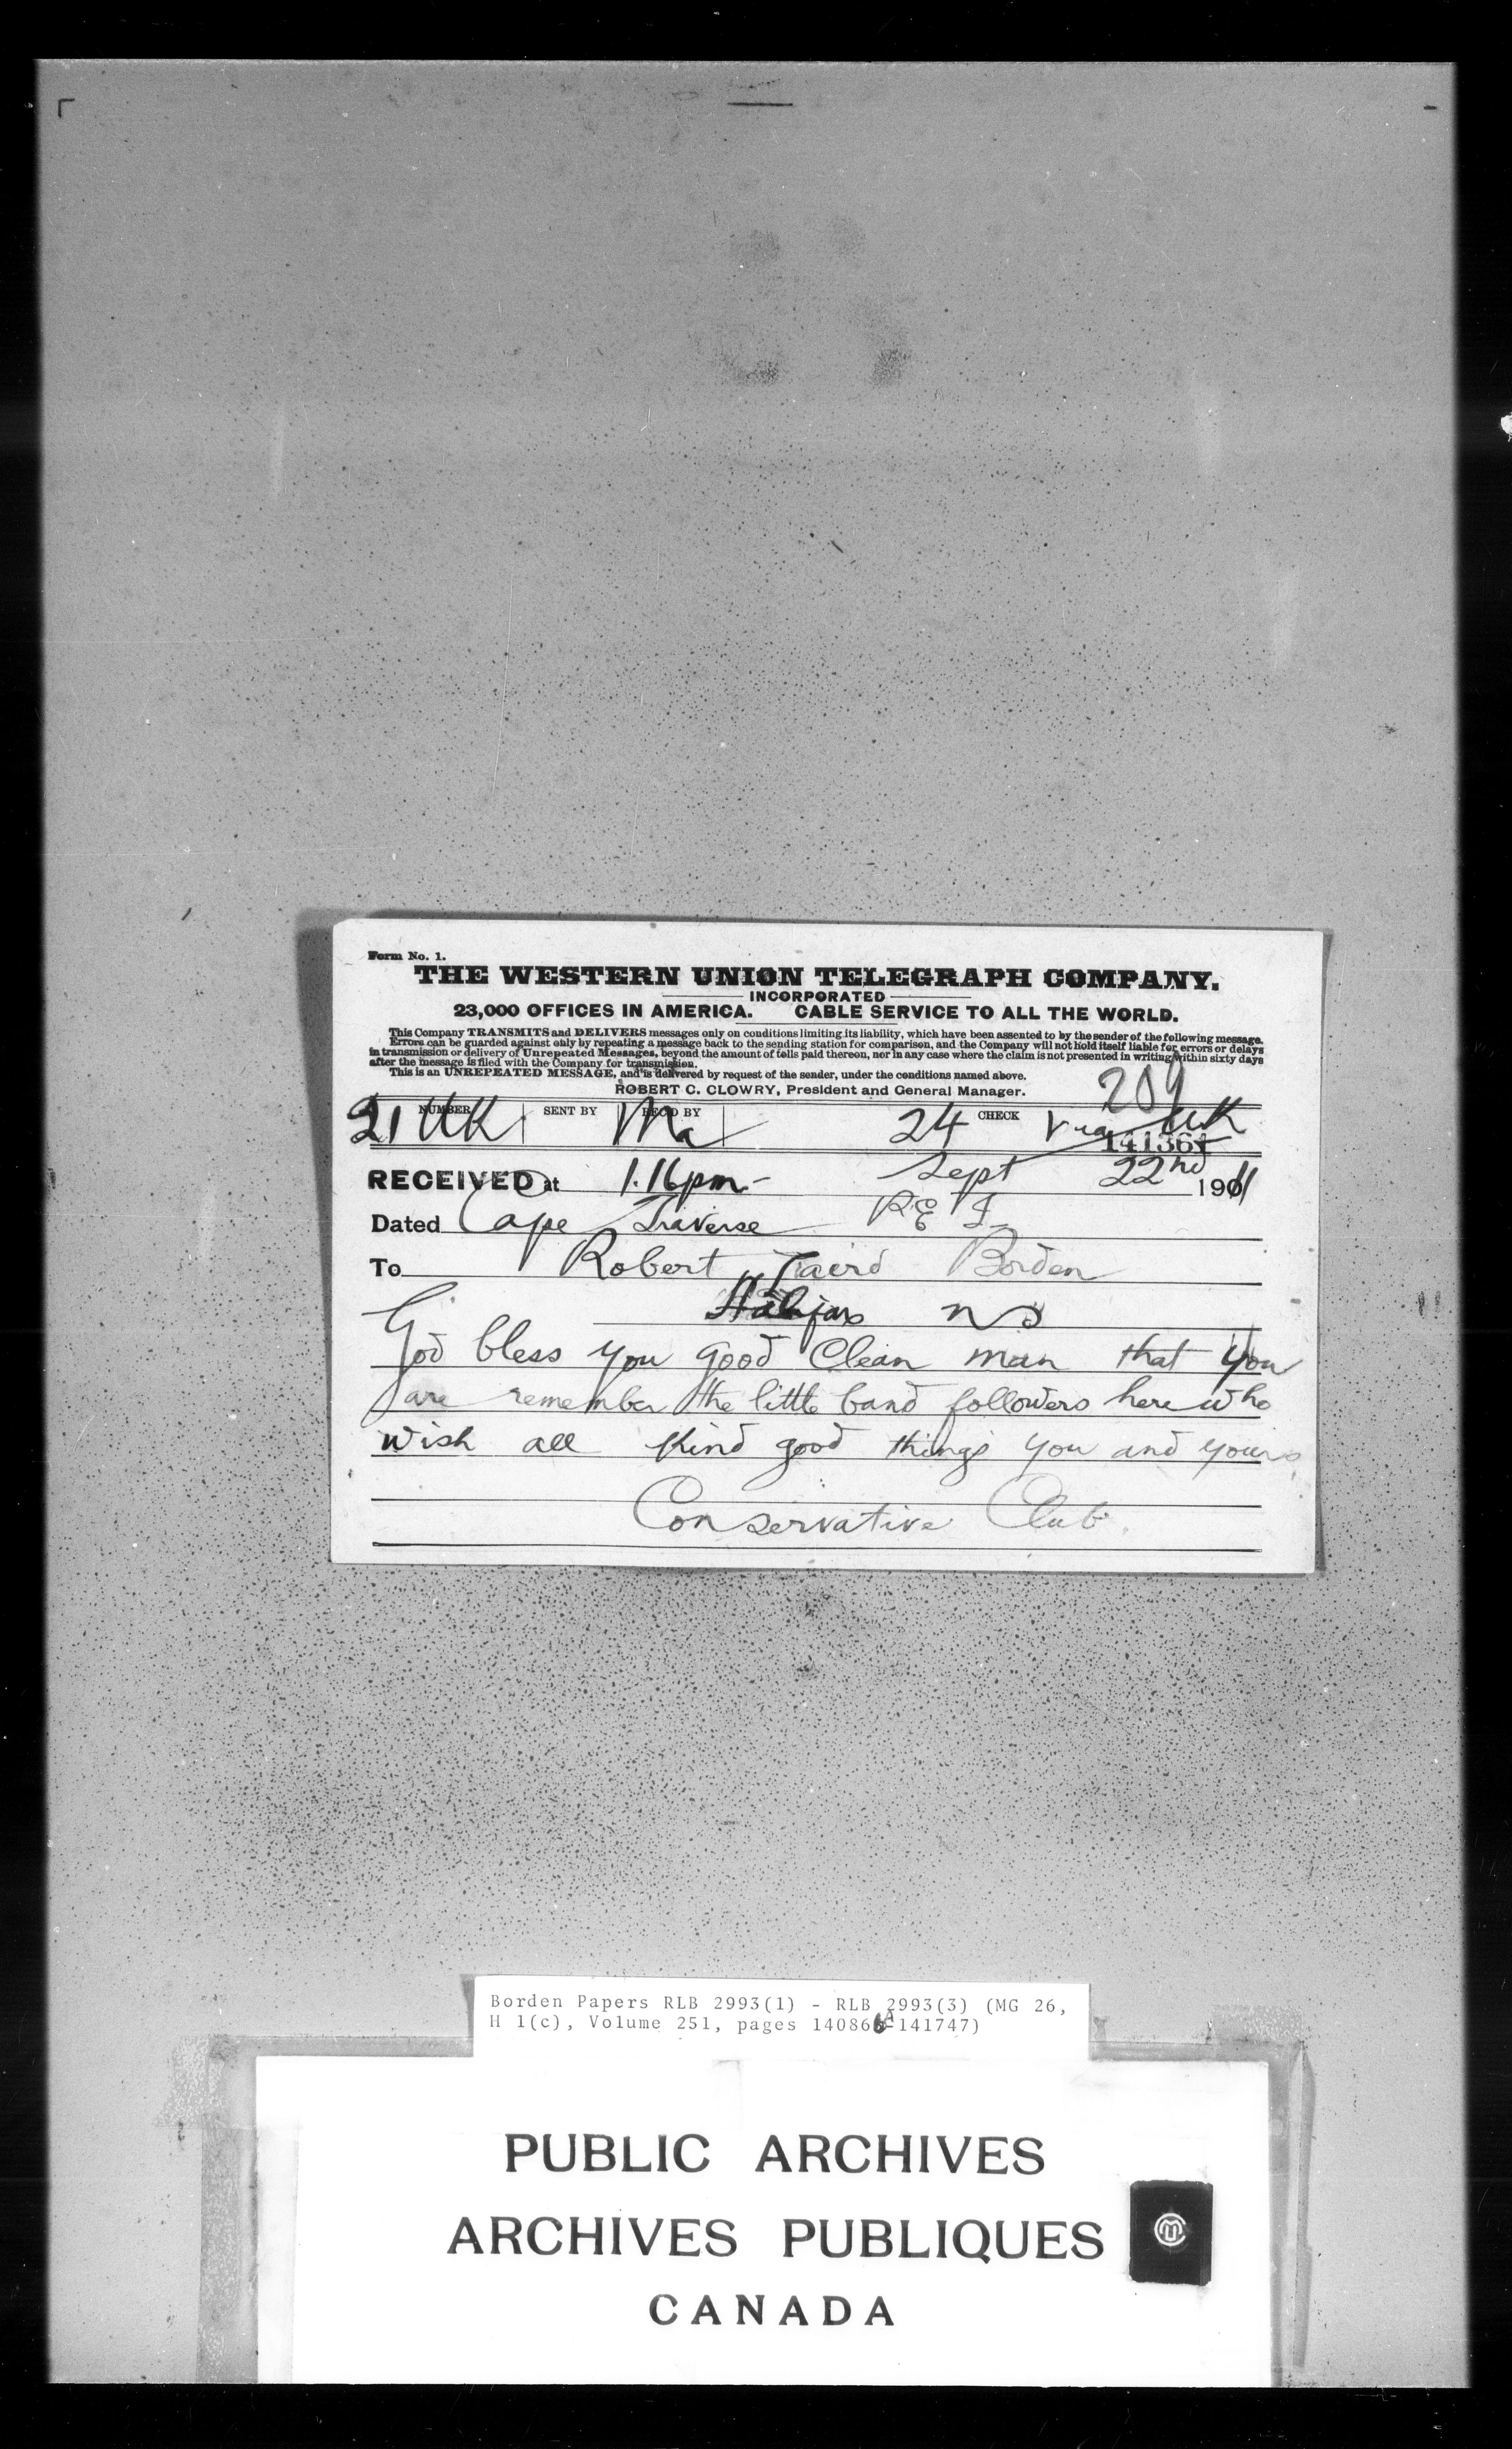 Form No. 1.
THE WESTERN UNION TELEGRAPH COMPANY.
INCORPORATED
23,000 OFFICES IN AMERICA. CABLE SERVICE TO ALL THE WORLD.
This Company TRANSMITS and DELIVERS messages only on conditions limiting its liability, which have been assented to by the sender of the following message.
Errors can be guarded against only by repeating a message back to the sending station for comparison, and the Company will not hold itself liable for errors or delays
in transmission or delivery of Unrepeated Messages, beyond the amount of tolls paid thereon, nor in any case where the claim is not presented in writing within sixty days
after the message is filed with the Company for transmission.
This is an UNREPEATED MESSAGE, and is delivered by request of the sender, under the conditions named above.
ROBERT C. CLOWRY, President and General Manager.
209
NUMBER SENT BY REC'D BY CHECK
21 UK Ma 24 via UK
141361
RECEIVED at 1.16pm- Sept 22nd 1911
Dated Cape Traverse P E I
To Robert Laird Borden
Halifax NS
God bless you good Clean man that you
are remember the little band followers here who
wish all kind good things you and yours
Conservative Club.
Borden Papers RLB 2993(1) - RLB 2993(3) (MG 26,
H 1(c), Volume 251, pages 140866A-141747)
PUBLIC ARCHIVES
ARCHIVES PUBLIQUES
CANADA